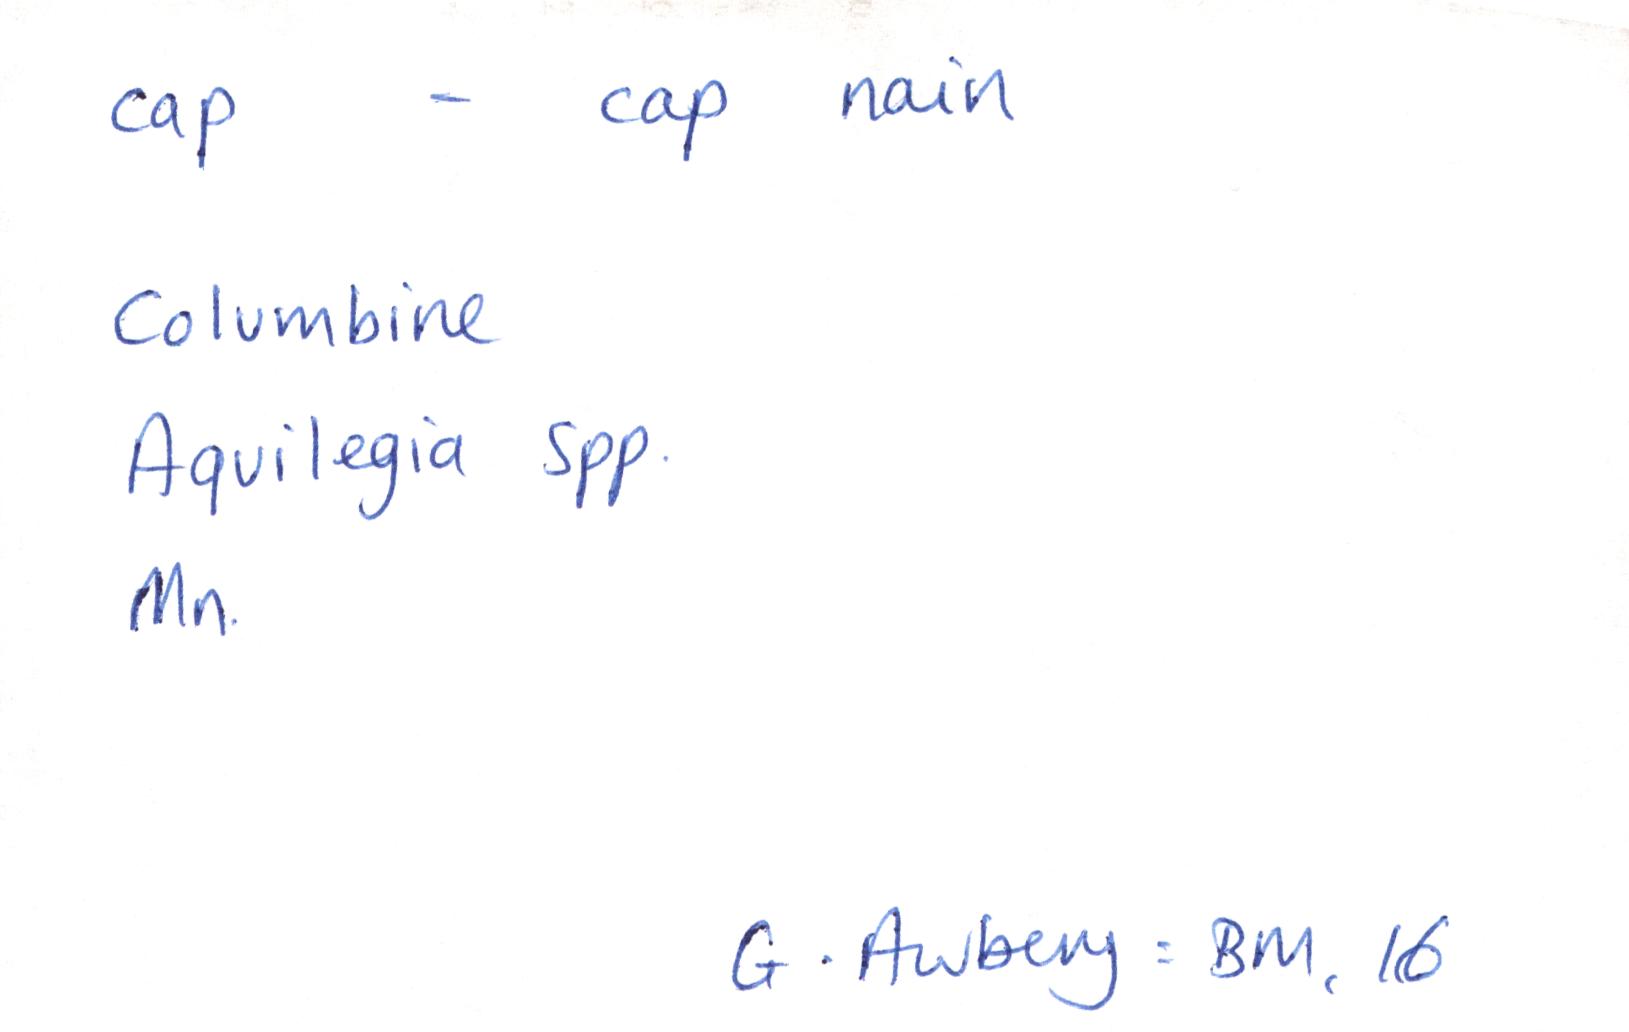 cap - cap nain
Columbine
Aquilegia spp.
Mn.
G. Awbery = BM, 16